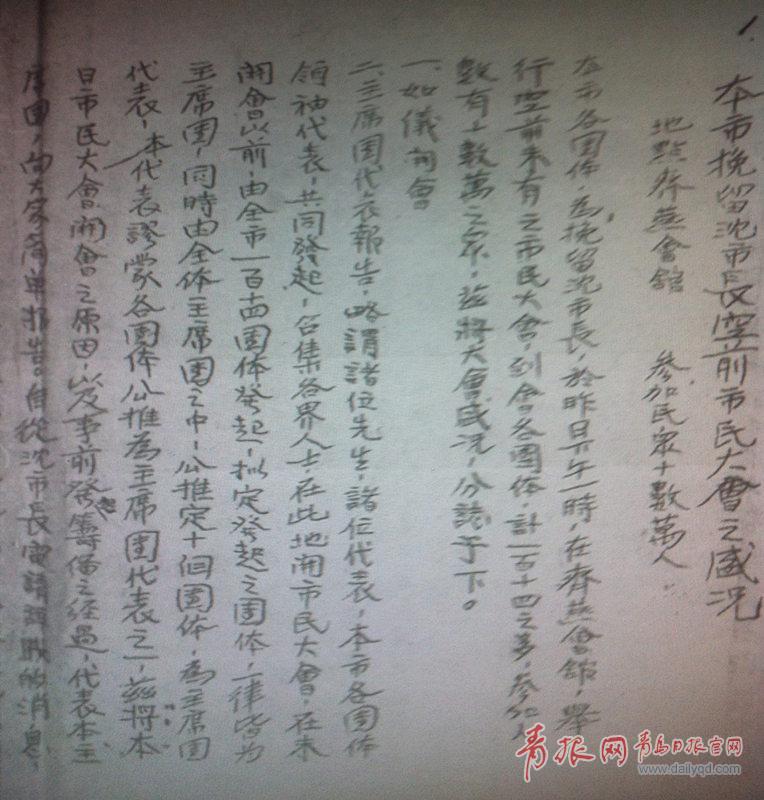 1. 本市挽留沈市長空前市民大會之盛况
地點齊燕會館 參加民衆十數萬人
本市各團体,為挽留沈市長,於昨日下午一時,在齊燕會館,舉
行空前未有之市民大會,到會各團体,計一百十四之多,參加人
數有十數萬之衆,茲將大會盛况,分誌于下。
一、如儀開會
二、主席團代表報告,略謂諸位先生,諸位代表,本市各團体
領袖代表,共同發起,召集各界人士,在此地開市民大會,在未
開會以前,由全市一百十四團体發起,拟定發起之團体,一律皆为
主席團,同時由全体主席團之中,公推定十個團体,為主席團
代表,本代表謬蒙各團体公推為主席團代表之一,茲將本
日市民大會,開會之原因,以及事前發起籌備之經過,代表本主
席團,向大家簡單報告。自從沈市長電請辞職的消息,
青报网 青岛日报官网
www.dailyqd.com